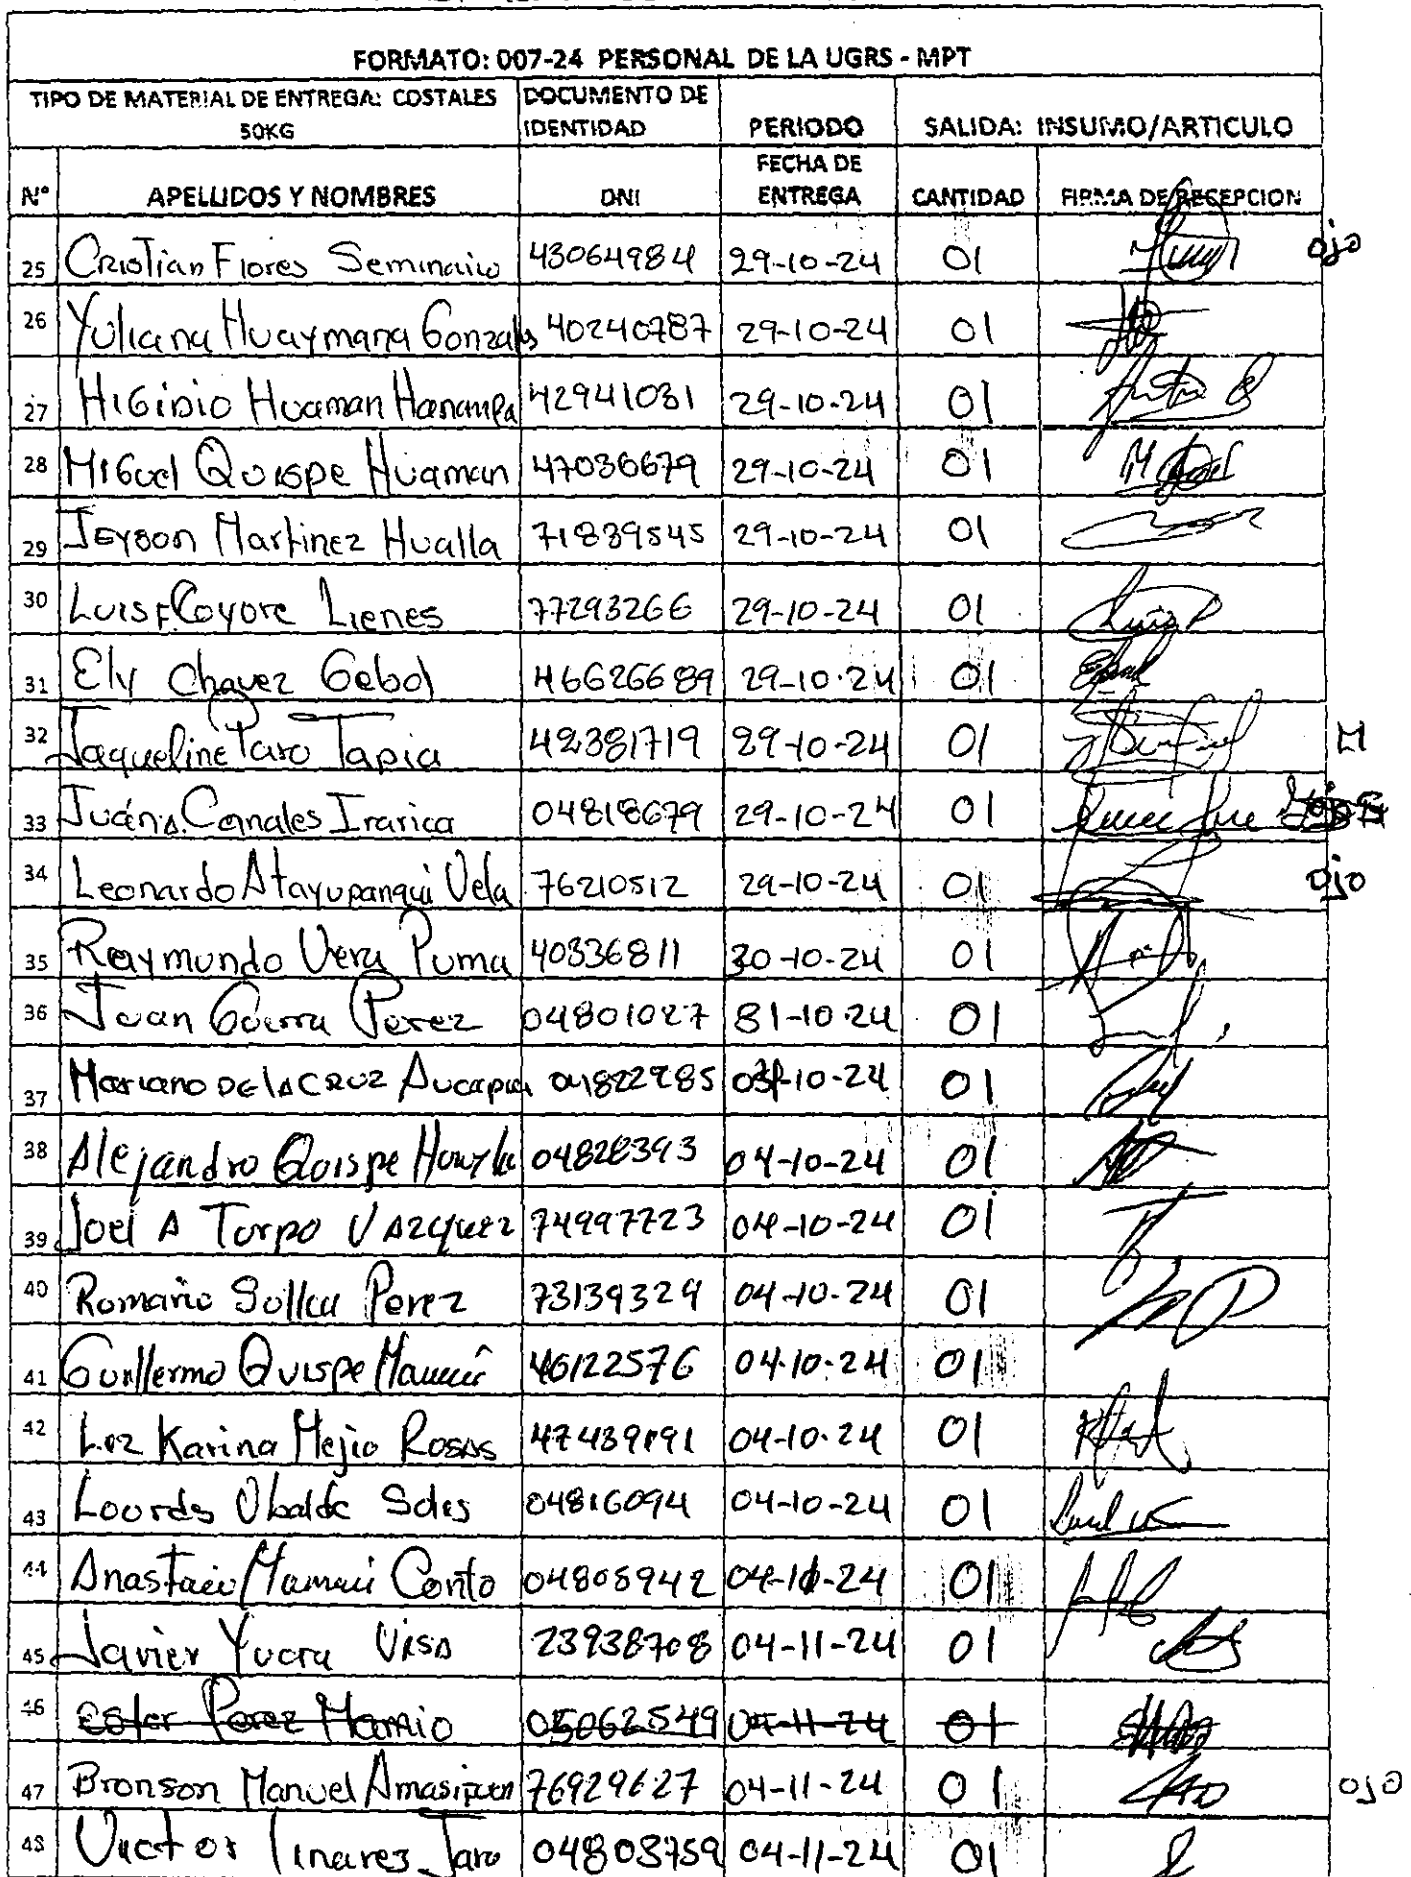 FORMATO: 007-24 PERSONAL DE LA UGRS - MPT
TIPO DE MATERIAL DE ENTREGA: COSTALES 50KG DOCUMENTO DE IDENTIDAD PERIODO SALIDA: INSUMO/ARTICULO
N° APELLIDOS Y NOMBRES DNI FECHA DE ENTREGA CANTIDAD FIRMA DE RECEPCION
25 Cristian Flores Seminario 43064984 29-10-24 01 ojo
26 Yuliana Huaymana Gonzales 40240787 29-10-24 01
27 HiGinio Huaman Hanampa 42941031 29-10-24 01
28 MiGuel Quispe Huaman 47036679 29-10-24 01
29 Jeyson Martinez Hualla 71839545 29-10-24 01
30 Luis F. Coyore Lienes 77293266 29-10-24 01
31 Ely Chavez Gebol 46626689 29-10-24 01
32 Jaqueline Paro Tapia 42381719 29-10-24 01 M
33 Juan A. Canales Irarica 04818679 29-10-24 01
34 Leonardo Atayupanqui Vela 76210512 29-10-24 01 ojo
35 Raymundo Vera Puma 40336811 30-10-24 01
36 Juan Guerra Perez 04801027 31-10-24 01
37 Mariano DE LA CRUZ 04822985 -10-24 01
38 Alejandro Quispe 04828393 04-10-24 01
39 Joel A Turpo VAzquez 74997723 04-10-24 01
40 Romario Sullca Perez 73139329 04-10-24 01
41 Guillermo Quispe Mamani 46122576 04-10-24 01
42 Luz Karina Mejio Rosas 04-10-24 01
43 Lourdes Ubalde Soles 04816094 04-10-24 01
44 Anastacio Mamani Conto 04805942 01
45 Javier Yucra Visa 23938708 04-11-24 01
46 Ester Perez Mamio 05062549 04-11-24 01
47 Bronson Manuel Amasifuen 76929627 04-11-24 01 ojo
48 Victor Linares Jaro 04803759 04-11-24 01